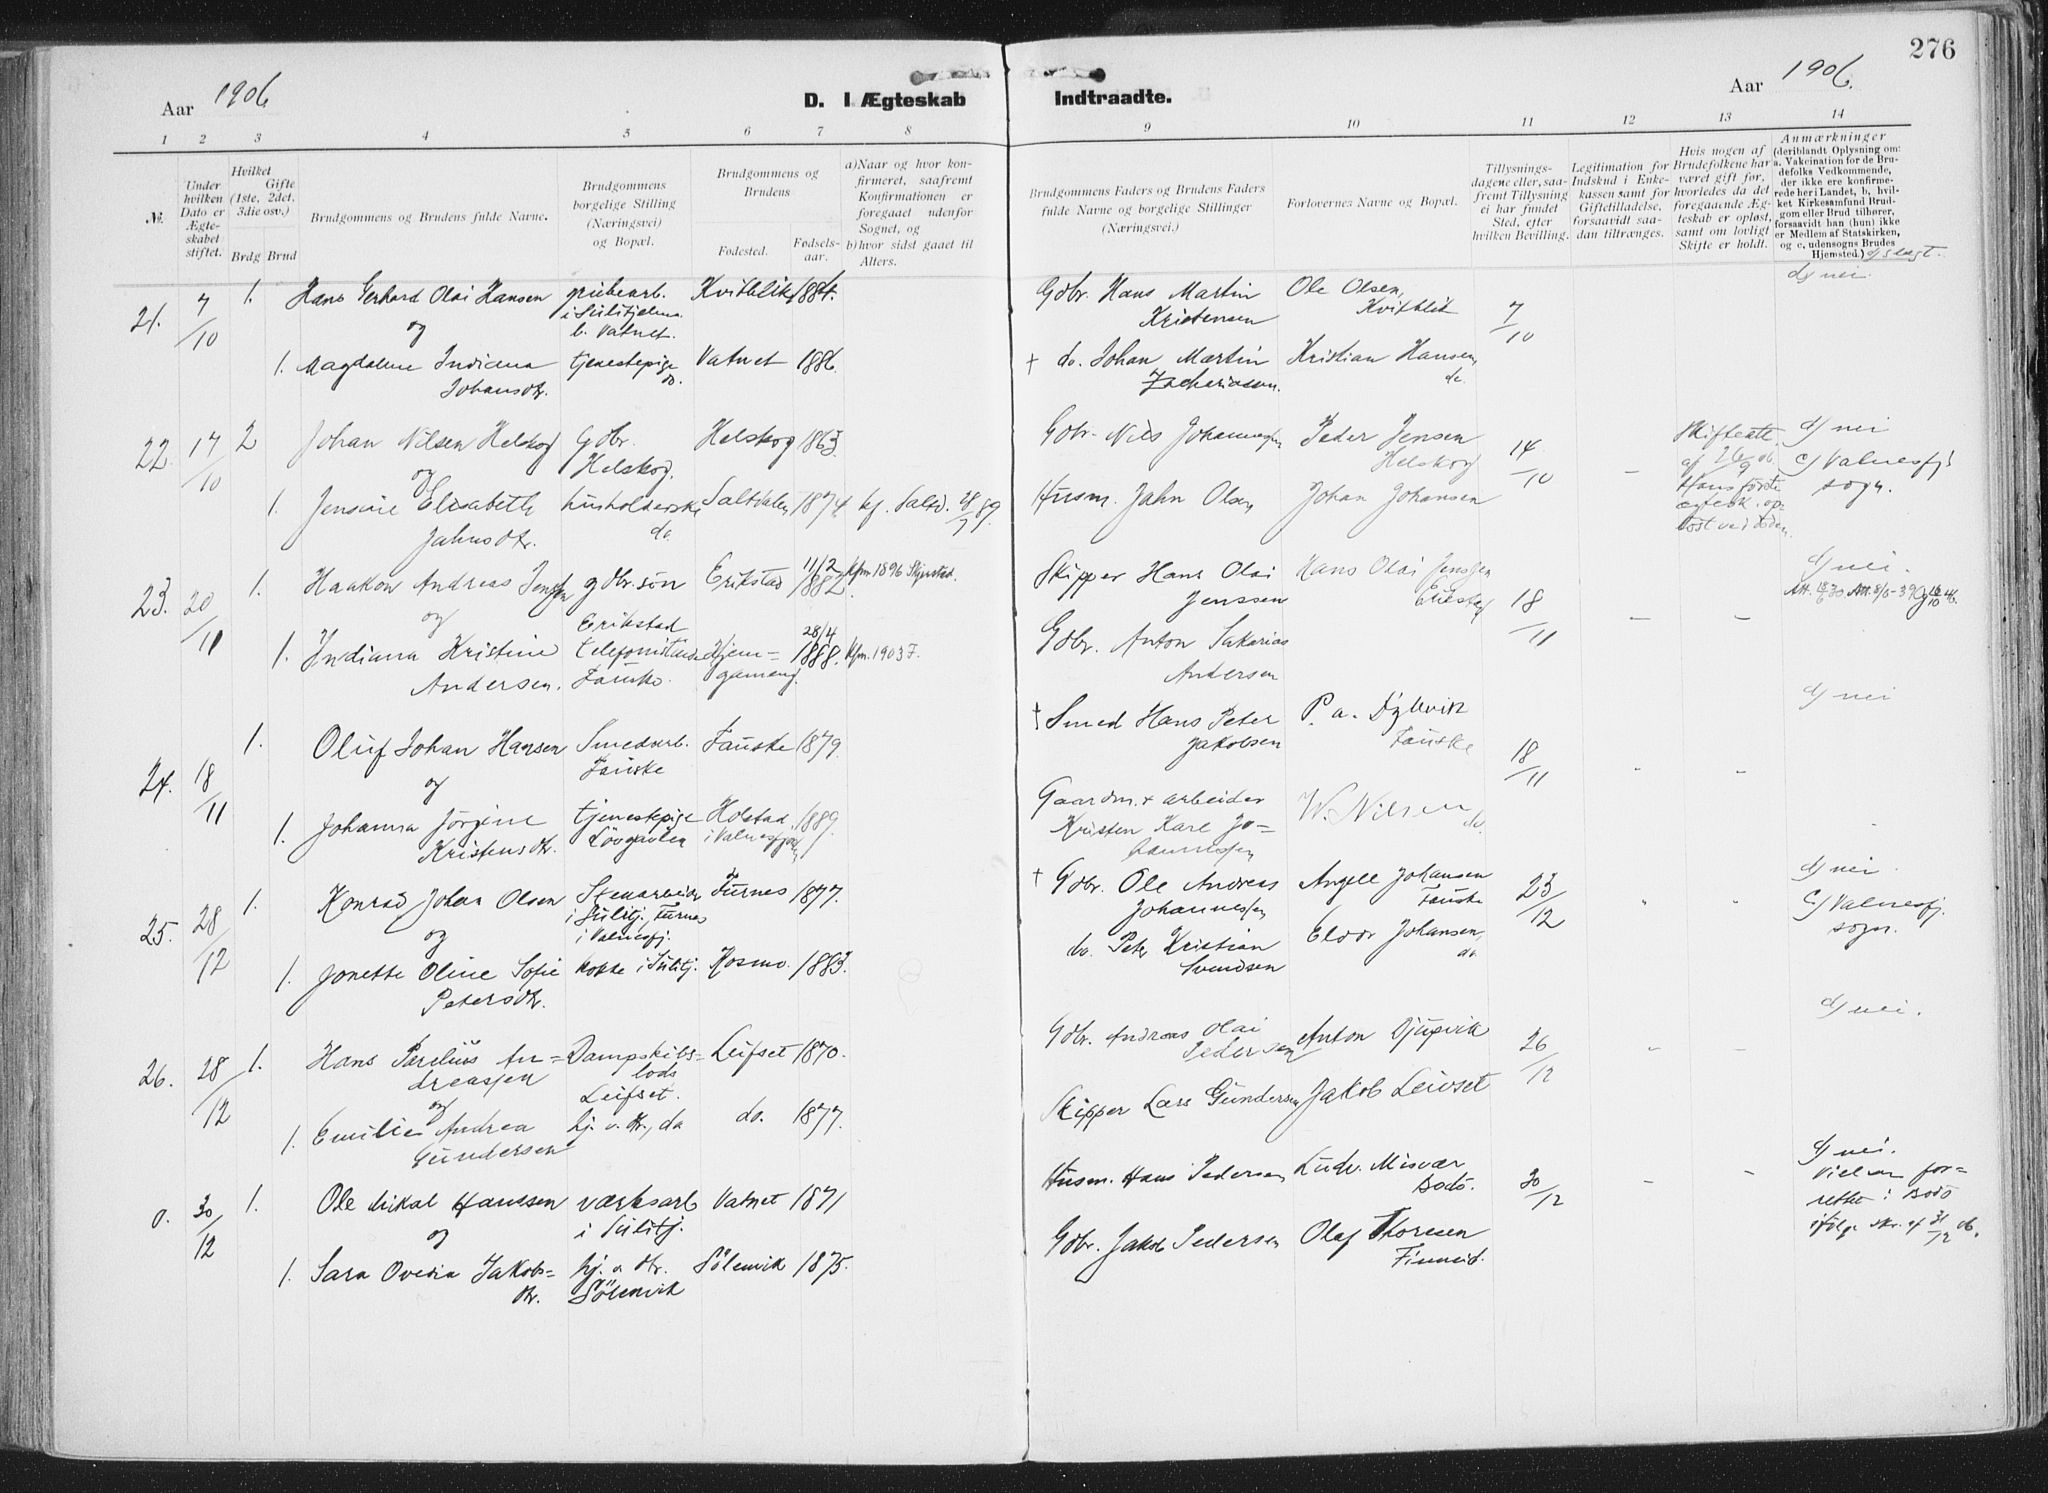 276
Aar 1906
D. I Ægteskab Indtraadte.
Aar 1906.
1 2 3 4 5 6 7 8 9 10 11 12 13 14
№.
Under hvilken Dato er Ægteskabet stiftet.
Hvilket Gifte (1ste, 2det, 3die osv.)
Brdg Brud
Brudgommens og Brudens fulde Navne.
Brudgommens borgelige Stilling (Næringsvei) og Bopæl.
Brudgommens og Brudens
Fødested. Fødselsaar.
a) Naar og hvor konfirmeret, saafremt Konfirmationen er foregaaet udenfor Sognet, og
b) hvor sidst gaaet til Alters.
Brudgommens Faders og Brudens Faders fulde Navne og borgelige Stillinger (Næringsvei.)
Forlovernes Navne og Bopæl.
Tillysningsdagene eller, saafremt Tillysning ei har fundet Sted, efter hvilken Bevilling.
Legitimation for Indskud i Enkekassen samt for Giftetilladelse, forsaavidt saadan tiltrænges.
Hvis nogen af Brudefolkene har været gift før, hvorledes da det foregaaende Ægteskab er opløst, samt om lovligt Skifte er holdt.
Anmærkninger (deriblandt Oplysning om: a. Vakcination for de Brudefolks Vedkommende, der ikke ere konfirmerede her i Landet, b, hvilket Kirkesamfund Brudgom eller Brud tilhører, forsaavidt han (hun) ikke er Medlem af Statskirken, og c, udensogns Brudes Hjemsted.) d/ slegt.
21. 7/10 1. Hans Gerhard Olai Hansen
i Sulitjelma
b. Vatnet.
Kvitblik 1884.
Gdbr. Hans Martin
Kristensen
Ole Olsen,
Kvitblik
7/10
d/ nei
og
1. Magdalene Indiana
Johansdtr.
tjenestepige
do.
Vatnet 1886.
† do. Johan Martin
Zachariasen.
Kristian Hansen,
do.
22. 17/10 2 Johan Nilsen Helskog
Gdbr.
Helskog.
Helskog 1863.
Gdbr. Nils Johannessen
Peder Jensen
Helskog
14/10
-
Skifteatt.
af 26/9 06.
Hans første
ægtesk. op-
løst ved døden.
d/ nei
c/ Valnesfj.
sogn.
og
1. Jensine Elisabeth
Jahnsdtr.
husholderske
do.
Saltdalen 1874 kf. Saltd. 28/7 89.
Husm. Jahn Olsen
Johan Johansen
23. 20/11 1. Haakon Andreas Jenssen
gdbr. søn
Erikstad
Erikstad 11/2 1882. Kfm. 1896 Skjerstad.
Skipper Hans Olai
Jenssen
Hans Olai Jenssen
Erikstad
18/11
-
-
d/ nei.
og
1. Indiana Kristine
Andersen.
telefonistinde
Fauske.
Hjem-
gamang. 28/4 1888. Kfm. 1903 F.
Gdbr. Anton Sakarias
Andersen
24. 18/11 1. Oluf Johan Hansen
Smedarb.
Fauske
Fauske 1879.
† Smed Hans Peter
Jakobsen
P. a. Dybvik
Fauske
18/11
-
-
d/ nei
og
1. Johanna Jørgine
Kristensdtr.
tjenestepige
Løvgavlen
Holstad
i Valnesfjorden 1889.
Gaardm. & arbeider
Kristen Karl Jo-
hannessen
W. Nilsen
do.
25. 28/12 1. Konrad Johan Olsen
Stenarbeider
i Sulitj., Furnes
i Valnesfj.
Furnes 1877.
† Gdbr. Ole Andreas
Johannessen
Angell Johansen
Fauske
23/12
d/ nei.
c/ Valnesfj.
sogn.
og
1. Jonette Oline Sofie
Petersdtr.
kokke i Sulitj. Kosmo. 1883.
do. Peter Kristian
Svendsen
Eldor Johansen,
do.
26. 28/12 1. Hans Parelius An-
dreassen
Dampskibs-
lods
Leifset.
Leifset 1870.
Gdbr. Andreas Olai
Pedersen
Anton Djupvik
26/12
-
-
d/ nei.
og
1. Emilie Andrea
Gundersen
hj. v. Mr., do
do. 1877.
Skipper Lars Gundersen
Jakob Leivset
0. 30/12 1. Ole Mikal Hanssen
værksarb
i Sulitj.
Vatnet 1871
Husm. Hans Pedersen
Ludv. Misvær
Bodø.
30/12
-
-
d/ nei.
Vielsen for-
rettet i Bodø
ifølge skr. af 31/12 06.
og
1. Sara Ovedia Jakobs-
dtr.
hj. v. Mr.
Sølenvik
Sølenvik 1875.
Gdbr. Jakob Pedersen
Olaf Thoresen
Finneid.